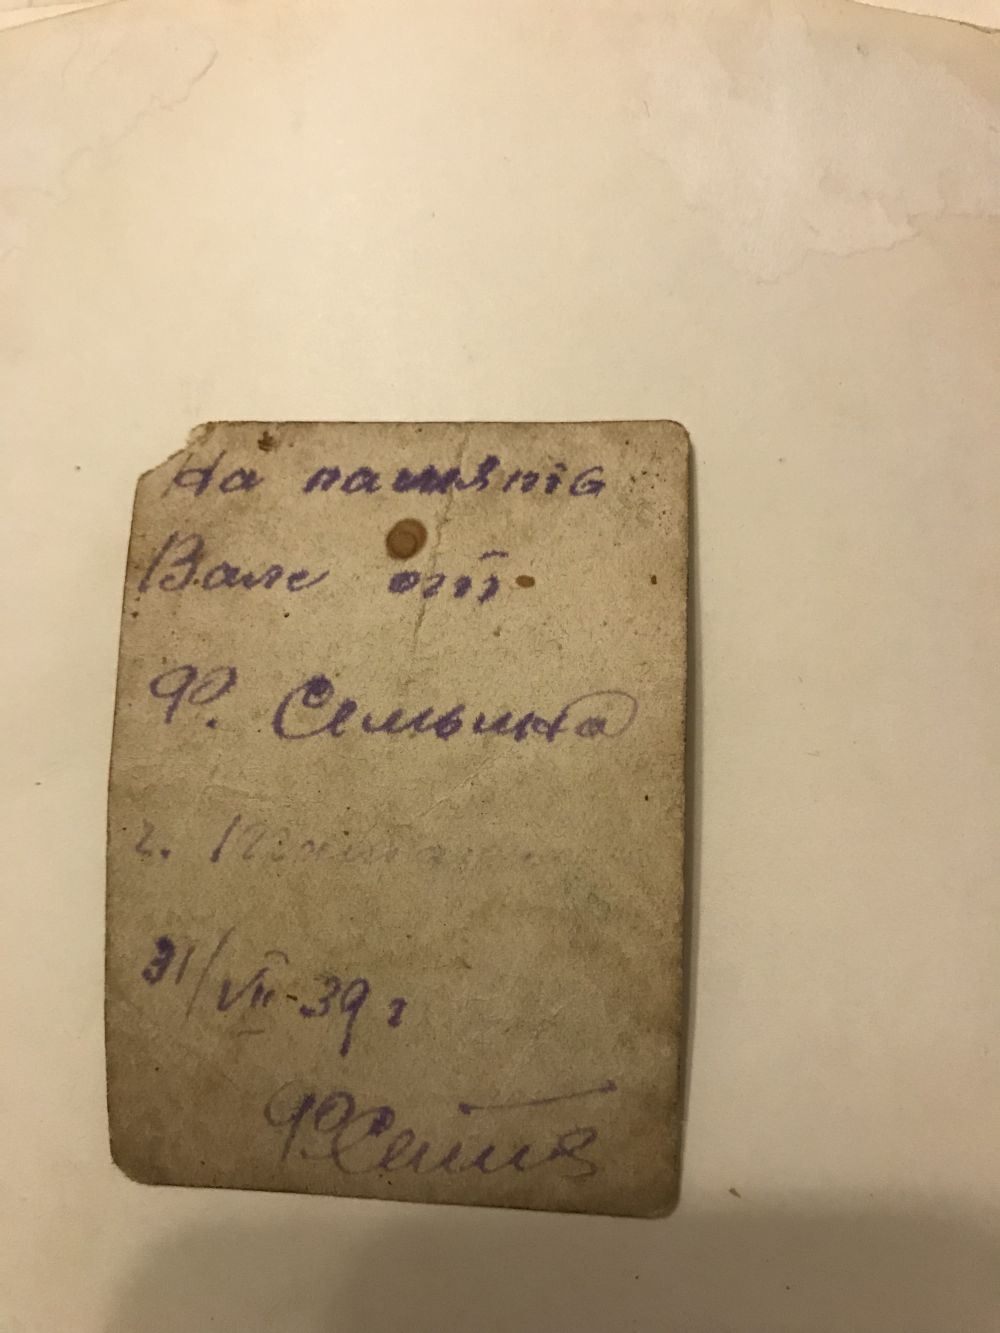 На память
Вале от
Ф. Семьина
г.
31/VII-39 г